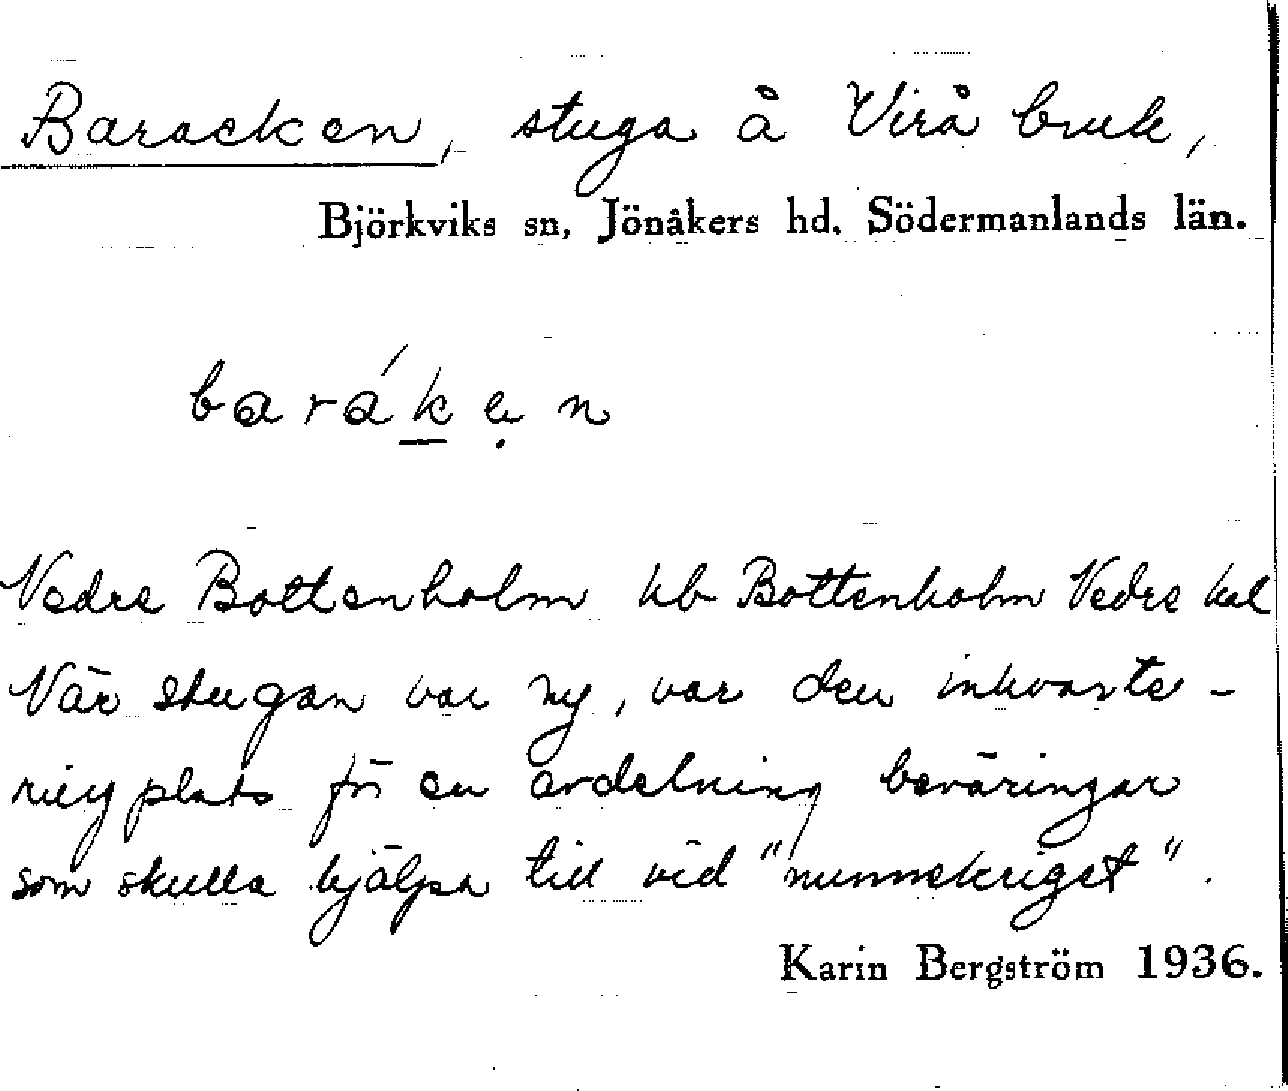 Baracken, stuga å Virå bruk,
Björkviks sn, Jönåkers hd. Södermanlands län.
barák̲ẹn
Vedre Bottenholm hb Bottenholm Vedre kal
När stugan var ny, var den inkvarte-
ringplats för en avdelning beväringar
som skulle hjälpa till vid "nunnekriget".
Karin Bergström 1936.